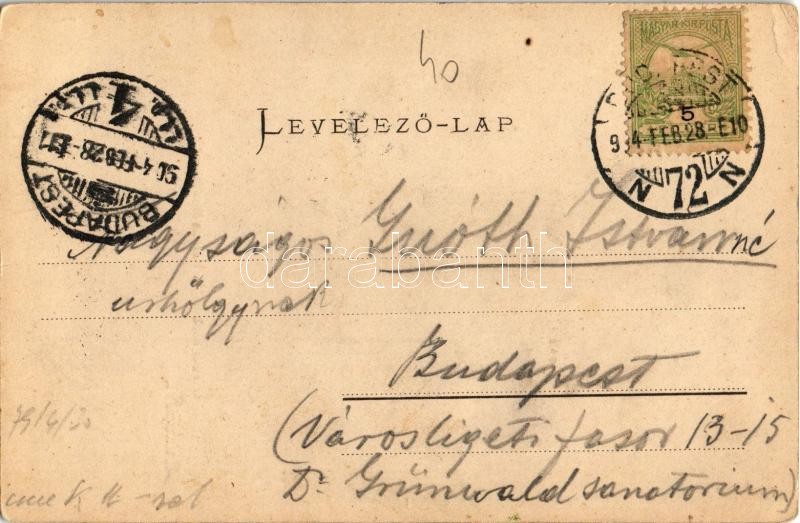 40
MAGYAR KIR. POSTA
5
904-FEB.28-E10
N 72 N
4
904-FEB.28-E11
BUDAPEST
LEVELEZŐ-LAP
Nagyságos Guóth Istvánné
urhölgynek
darabanth
Budapest
(Városligeti fasor 13-15
Dr Grünwald sanatorium)
79/4/20